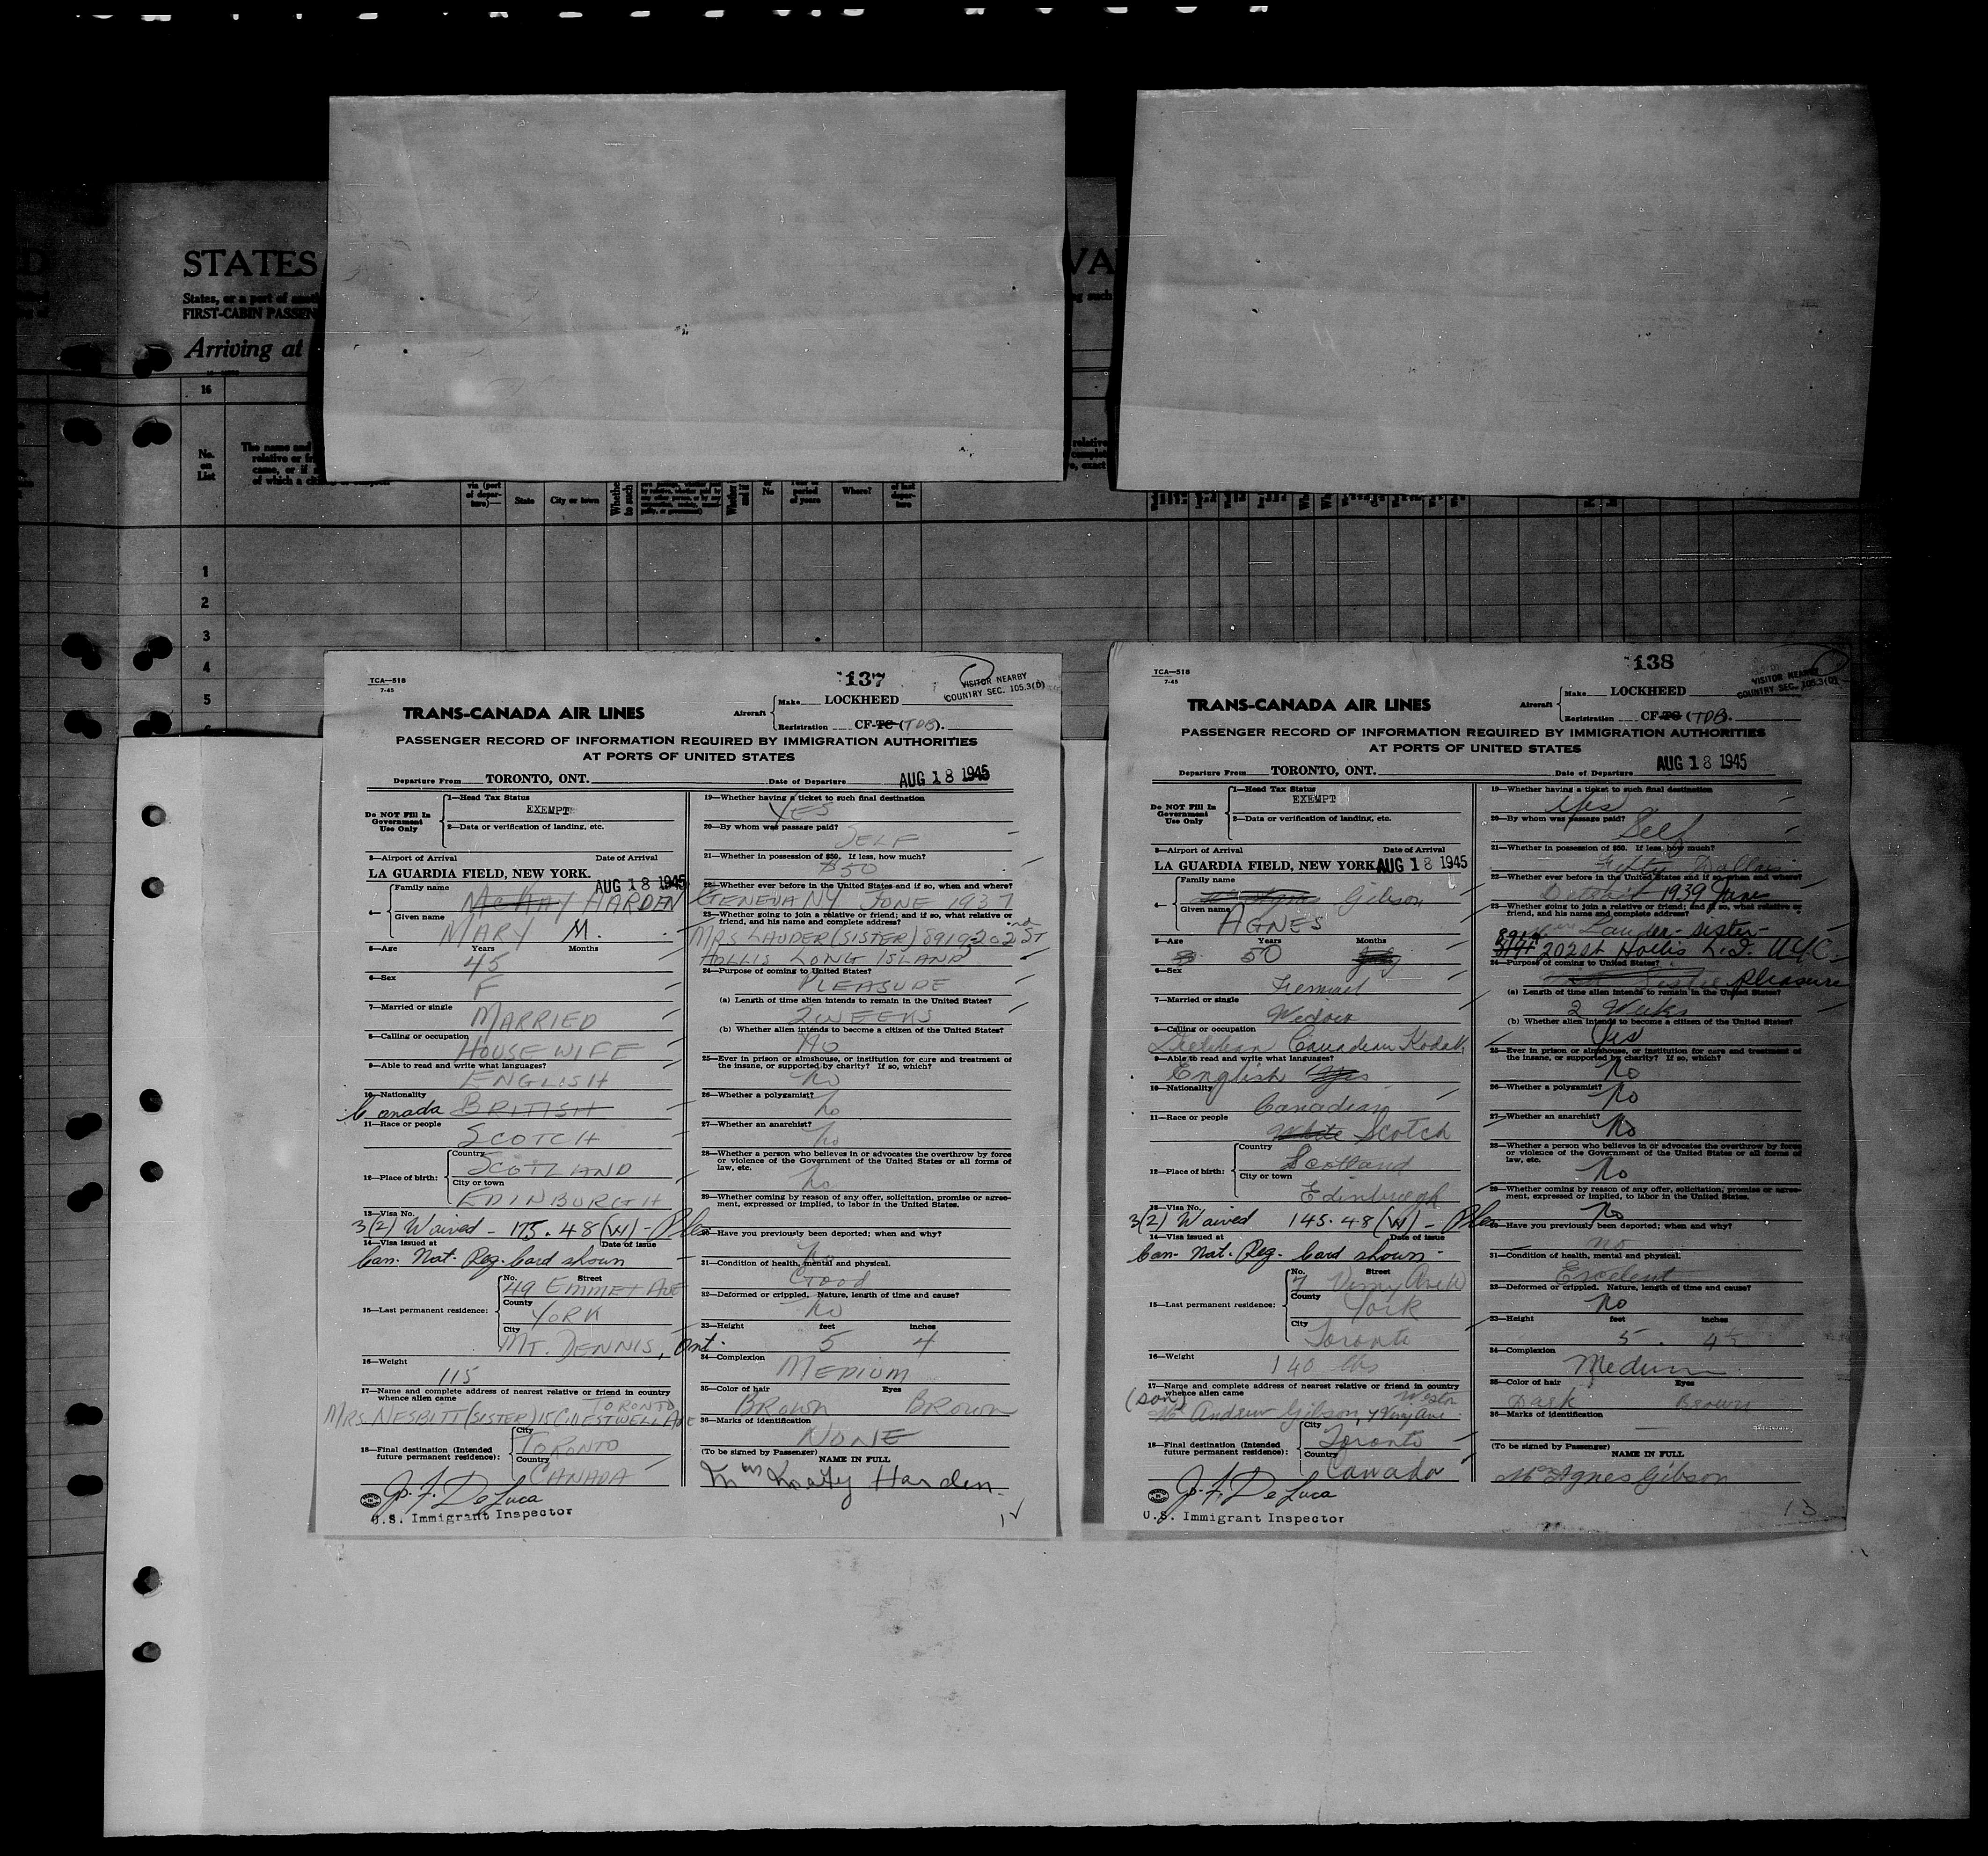 STATES
States, or a port of
FIRST-CABIN PASSEN
Arriving at
VA
16
No.
on
List
The name and
relative or fr
came, or if
of which a
via (port
of depar-
ture)—
State
City or town
Whether
to such
No
period
of years
Where?
of last
depar-
ture
1
2
3
4
5
TCA—518
7-45
137
VISITOR NEARBY
COUNTRY SEC. 105.3(D)
TRANS-CANADA AIR LINES
Aircraft
Make LOCKHEED
Registration CF-TC (TDB).
PASSENGER RECORD OF INFORMATION REQUIRED BY IMMIGRATION AUTHORITIES
AT PORTS OF UNITED STATES
Departure From TORONTO, ONT. Date of Departure AUG 18 1945
Do NOT Fill In
Government
Use Only
1—Head Tax Status
EXEMPT
2—Data or verification of landing, etc.
3—Airport of Arrival Date of Arrival
LA GUARDIA FIELD, NEW YORK. AUG 18 1945
4—
Family name
McKAY HARDEN
Given name
MARY M.
5—Age Years Months
45
6—Sex
F
7—Married or single
MARRIED
8—Calling or occupation
HOUSEWIFE
9—Able to read and write what languages?
ENGLISH
10—Nationality
Canada BRITISH
11—Race or people
SCOTCH
12—Place of birth:
Country
SCOTLAND
City or town
EDINBURGH
13—Visa No.
3(2) Waived - 175.48 (W) - Plea
14—Visa issued at Date of issue
Can. Nat. Reg. Card shown
15—Last permanent residence:
No. Street
49 EMMET AVE
County
YORK
City
MT. DENNIS, Ont.
16—Weight
115
17—Name and complete address of nearest relative or friend in country
whence alien came
TORONTO
MRS NESBITT (SISTER) 15
18—Final destination (Intended
future permanent residence):
City
TORONTO
Country
CANADA
J. F. De Luca
U.S. Immigrant Inspector
19—Whether having a ticket to such final destination
YES
20—By whom was passage paid?
SELF
21—Whether in possession of $50. If less, how much?
$50
22—Whether ever before in the United States and if so, when and where?
GENEVA NY JUNE 1937
23—Whether going to join a relative or friend; and if so, what relative or
friend, and his name and complete address?
MRS LAUDER (SISTER) 8919-202nd ST
HOLLIS LONG ISLAND
24—Purpose of coming to United States?
PLEASURE
(a) Length of time alien intends to remain in the United States?
2 WEEKS
(b) Whether alien intends to become a citizen of the United States?
NO
25—Ever in prison or almshouse, or institution for care and treatment of
the insane, or supported by charity? If so, which?
no
26—Whether a polygamist?
no
27—Whether an anarchist?
no
28—Whether a person who believes in or advocates the overthrow by force
or violence of the Government of the United States or all forms of
law, etc.
no
29—Whether coming by reason of any offer, solicitation, promise or agree-
ment, expressed or implied, to labor in the United States.
30—Have you previously been deported; when and why?
no
31—Condition of health, mental and physical.
GOOD
32—Deformed or crippled. Nature, length of time and cause?
no
33—Height feet inches
5 4
34—Complexion
MEDIUM
35—Color of hair Eyes
BROWN BROWN
36—Marks of identification
NONE
(To be signed by Passenger) NAME IN FULL
Mrs Harden.
12
TCA—518
7-45
138
VISITOR NEARBY
COUNTRY SEC. 105.3(D)
TRANS-CANADA AIR LINES
Aircraft
Make LOCKHEED
Registration CF-TC (TDB).
PASSENGER RECORD OF INFORMATION REQUIRED BY IMMIGRATION AUTHORITIES
AT PORTS OF UNITED STATES
Departure From TORONTO, ONT. Date of Departure AUG 18 1945
Do NOT Fill In
Government
Use Only
1—Head Tax Status
EXEMPT
2—Data or verification of landing, etc.
3—Airport of Arrival Date of Arrival
LA GUARDIA FIELD, NEW YORK AUG 18 1945
4—
Family name
Gibson
Given name
AGNES
5—Age Years Months
50
6—Sex
Femail
7—Married or single
Widow
8—Calling or occupation
Dietitian Canadian Kodak
9—Able to read and write what languages?
English Yes
10—Nationality
Canadian
11—Race or people
White Scotch
12—Place of birth:
Country
Scotland
City or town
Edinburgh
13—Visa No.
3(2) Waived 145.48 (W) - Plea
14—Visa issued at Date of issue
Can. Nat. Reg. Card shown -
15—Last permanent residence:
No. Street
7 Vimy Ave W
County
York
City
Toronto
16—Weight
140 lbs
17—Name and complete address of nearest relative or friend in country
whence alien came
(son) Weston
Mr Andrew Gibson, 7 Vimy Ave.
18—Final destination (Intended
future permanent residence):
City
Toronto
Country
Canada
J. F. De Luca
U.S. Immigrant Inspector
19—Whether having a ticket to such final destination
Yes
20—By whom was passage paid?
Self
21—Whether in possession of $50. If less, how much?
Fifty Dollars
22—Whether ever before in the United States and if so, when and where?
Detroit 1939 June
23—Whether going to join a relative or friend; and if so, what relative or
friend, and his name and complete address?
Lauder - sister -
8919 202 St Hollis L.I. N.Y.C.
24—Purpose of coming to United States?
pleasure
(a) Length of time alien intends to remain in the United States?
2 Weeks
(b) Whether alien intends to become a citizen of the United States?
Yes
25—Ever in prison or almshouse, or institution for care and treatment of
the insane, or supported by charity? If so, which?
no
26—Whether a polygamist?
no
27—Whether an anarchist?
no
28—Whether a person who believes in or advocates the overthrow by force
or violence of the Government of the United States or all forms of
law, etc.
no
29—Whether coming by reason of any offer, solicitation, promise or agree-
ment, expressed or implied, to labor in the United States.
no
30—Have you previously been deported; when and why?
no
31—Condition of health, mental and physical.
Excelent
32—Deformed or crippled. Nature, length of time and cause?
no
33—Height feet inches
5 4½
34—Complexion
Medium
35—Color of hair Eyes
Dark Brown
36—Marks of identification
(To be signed by Passenger) NAME IN FULL
Mrs Agnes Gibson
13